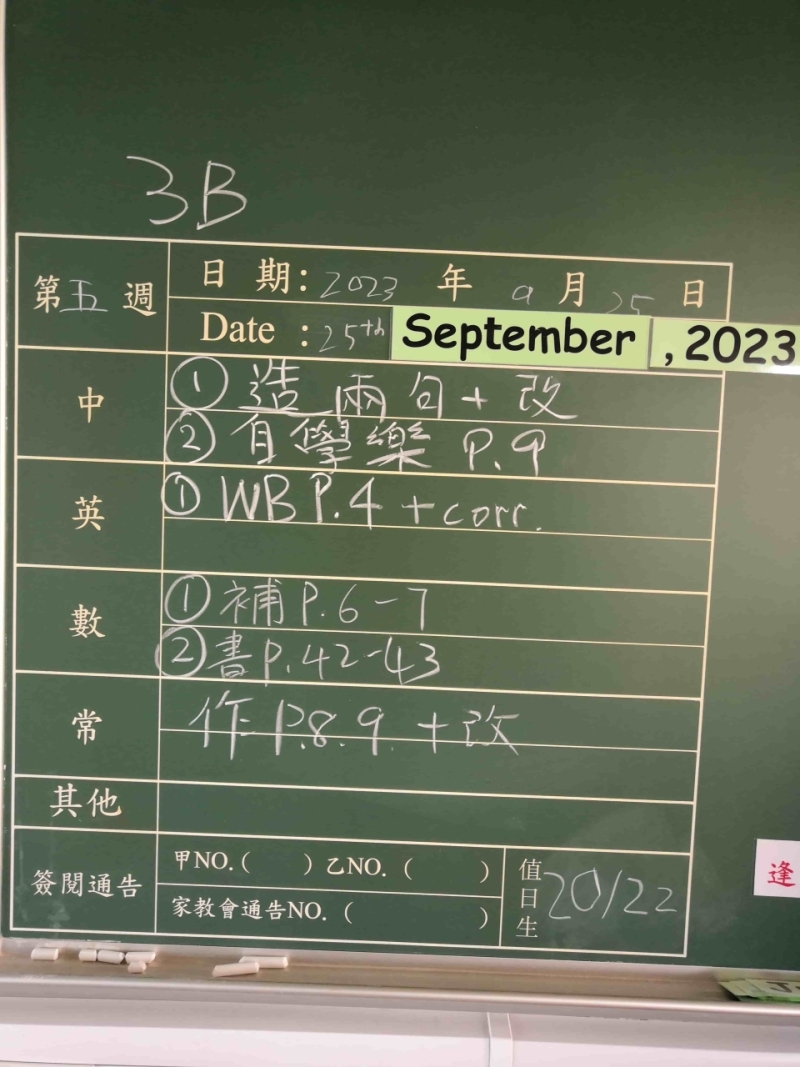 3B
第五週
日期：2023年9月25日
Date : 25th September , 2023
中
① 造兩句 + 改
② 自學樂 P.9
英
① WB P.4 + corr.
數
① 補 P.6-7
② 書 P.42-43
常
作 P.8.9. + 改
其他
簽閱通告
甲NO.( ) 乙NO. ( )
家教會通告NO. ( )
值日生 20/22
逢